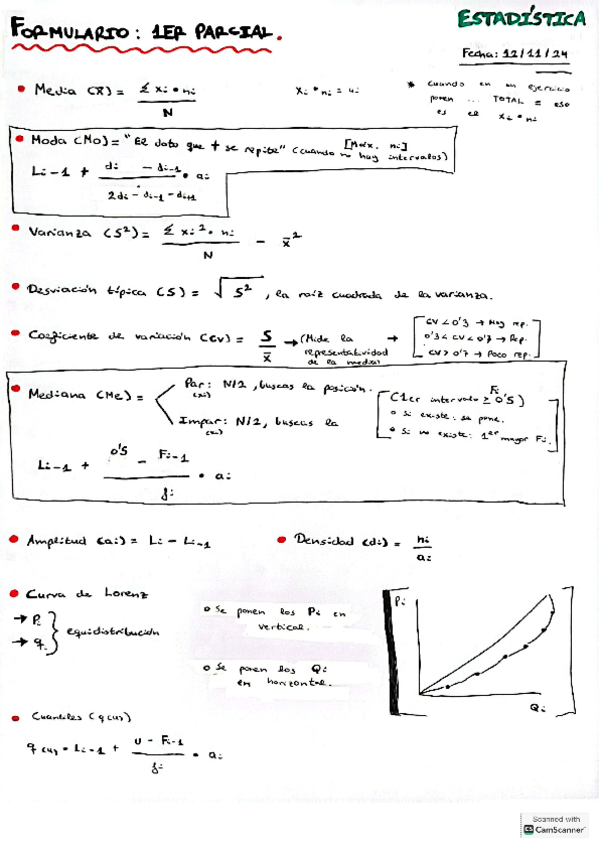 ESTADÍSTICA
FORMULARIO: 1ER PARCIAL.
Fecha: 12/11/24
• Media (x̄) = Σ xi • ni / N
xi • ni = ui
* cuando en un ejercicio
ponen ... TOTAL = eso
es el xi • ni
• Moda (Mo) = "El dato que + se repite" (cuando no hay intervalos) [Máx. ni]
Li-1 + di - di-1 / 2di - di-1 - di+1 • ai
• Varianza (S²) = Σ xi² • ni / N - x̄²
• Desviación típica (S) = √S², la raíz cuadrada de la varianza.
• Coeficiente de variación (CV) = S / x̄ → (Mide la
representatividad
de la media) →
CV < 0'3 → Muy rep.
0'3 < CV < 0'7 → Rep.
CV > 0'7 → Poco rep.
• Mediana (Me) =
Par: N/2, buscas la posición.
(xi)
Impar: N/2, buscas la
(xi)
(1er intervalo Fi ≥ 0'5)
o Si existe: se pone.
o Si no existe: 1er mayor Fi.
Li-1 + 0'5 - Fi-1 / fi • ai
• Amplitud (ai) = Li - Li-1
• Densidad (di) = ni / ai
• Curva de Lorenz
→ Pi
→ qi
equidistribución
o Se ponen los Pi en
vertical.
o Se ponen los Qi
en horizontal.
Pi
Qi
• Cuantiles (q(u))
q(u) = Li-1 + u - Fi-1 / fi • ai
Scanned with
CamScanner